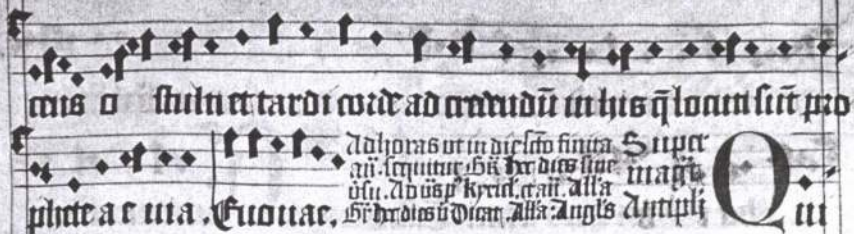 cens o stulti et tardi corde ad credendū in his q̄ locuti sūt pro
phete a e uia . Euouae. Ad horas ut in die scō finita Super
añ. sequitur Gr̄ hec dies sine magt̄
v̄su. Ad v̄sp̄ kyriel. et añ. Alla
Gr̄ hec dies v̄ Dicat. Alla: Angl̄s Antipli Q ui